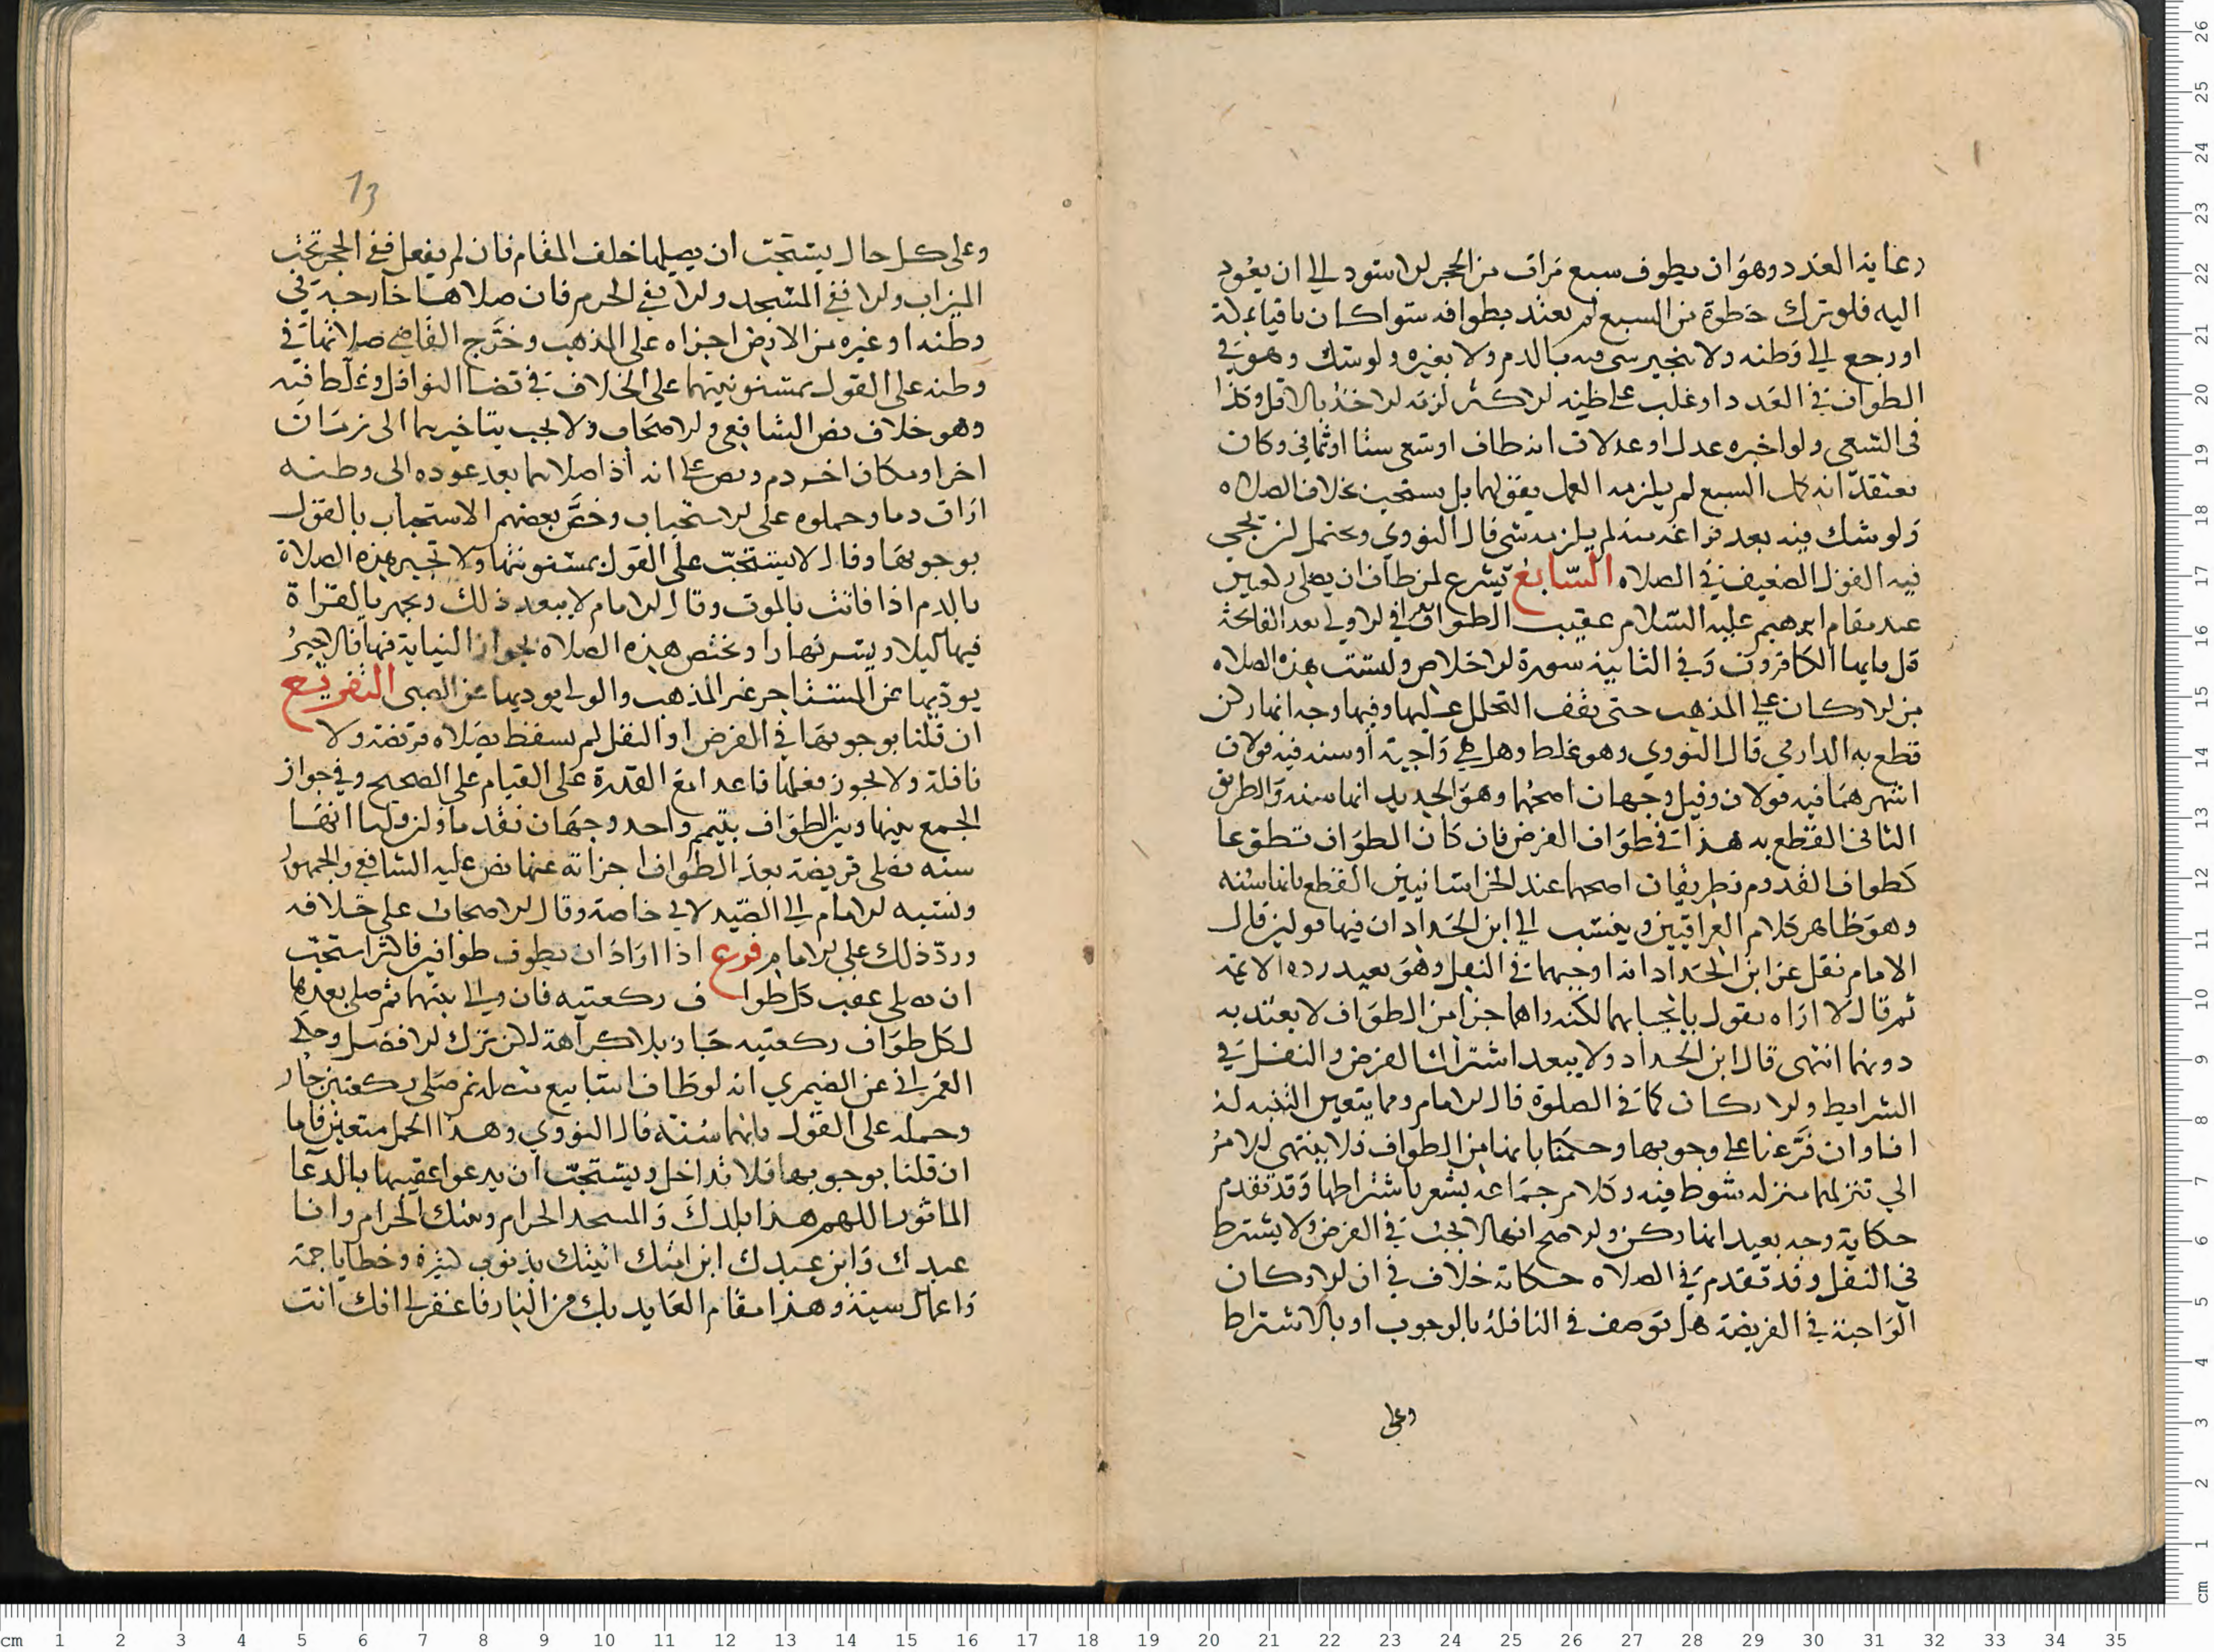 رعاية العدد وهو ان يطوف سبع مرات من الحجر الاسود الى ان يعود
اليه فلو ترك خطوة من السبع لم يعتد بطوافه سوا كان باقيا بمكة
او رجع الى وطنه ولا ينجبر شي منه بالدم ولا بغيره ولو شك وهو في
الطواف في العدد او غلب على ظنه الاكثر لزمه الاخذ بالاقل وكذا
في السعي ولو اخبره عدل او عدلان انه طاف او سعى ستا او ثماني وكان
يعتقد انه كمل السبع لم يلزمه العمل بقولهما بل يستحب بخلاف الصلاه
ولو شك فيه بعد فراغه منه لم يلزمه شي قال النووي ويحتمل ان يجي
فيه القول الضعيف في الصلاه السابع تشرع لمن طاف ان يصلي ركعتين
عند مقام ابرهيم عليه السلام عقيب الطواف يقرا في الاولى بعد الفاتحة
قل يايها الكافرون وفي الثانية سورة الاخلاص وليست هذه الصلاه
من الاركان على المذهب حتى يقف التحلل عليها وفيها وجه انها ركن
قطع به الدارمي قال النووي وهو غلط وهل هي واجبة او سنه فيه قولان
اشهرهما فيه قولان وقيل وجهان اصحهما وهو الجديد انها سنة والطريق
الثاني القطع به هذا في طواف الفرض فان كان الطواف تطوعا
كطواف القدوم فطريقان اصحهما عند الخراسانيين القطع بانها سنه
وهو ظاهر كلام العراقيين وينسب الى ابن الحداد ان فيها قولين قال
الامام نقل عن ابن الحداد انه اوجبهما في النفل وهو بعيد رده الائمة
ثم قال لا اراه يقول بايجابهما لكنه راهما جزا من الطواف لا يعتد به
دونهما انتهى قال ابن الحداد ولا يبعد اشتراك الفرض والنفل في
الشرايط والاركان كما في الصلوة قال الامام ومما يتعين التنبه له
انا وان فرعنا على وجوبها وحكمنا بانها من الطواف فلا ينتهي الامر
الى تنزلهما منزله شوط فيه وكلام جماعه يشعر باشتراطها وقد تقدم
حكاية وجه بعيد انها ركن والاصح انها لا تجب في الفرض ولا يشترط
في النفل وقد تقدم في الصلاه حكاية خلاف في ان الاركان
الواجبة في الفريضة هل توصف في النافلة بالوجوب او بالاشتراط
وعلى
13
وعلى كل حال يستحب ان يصليها خلف المقام فان لم يفعل ففي الحجر تحت
الميزاب والا ففي المسجد والا ففي الحرم فان صلاها خارجه في
وطنه او غيره من الارض اجزاه على المذهب وخرج القاضي صلاتها في
وطنه على القول بمسنونيتهما على الخلاف في قضا النوافل وغلط فيه
وهو خلاف نص الشافعي والاصحاب ولا يجب بتاخيرهما الى زمان
اخر او مكان اخر دم ونص على انه اذا صلاهما بعد عوده الى وطنه
اراق دما وحملوه على الاستحباب وخص بعضهم الاستحباب بالقول
بوجوبها وقال لا يستحب على القول بمسنونيتها ولا تجبر هذه الصلاة
بالدم اذا فاتت بالموت وقال الامام لا يبعد ذلك ويجهر بالقراة
فيها ليلا ويسر نهارا وتختص هذه الصلاه بجواز النيابة فيها فالاجير
يوديها عن المستاجر على المذهب والولي يوديها عن الصبي التفريع
ان قلنا بوجوبها في الفرض او النفل لم تسقط بصلاه فريضة ولا
نافلة ولا يجوز فعلها قاعدا مع القدرة على القيام على الصحيح وفي جواز
الجمع بينها وبين الطواف بتيمم واحد وجهان تقدما وان قلنا انها
سنه فصلى فريضة بعد الطواف اجزاته عنها نص عليه الشافعي والجمهور
ونسبه الامام الى الصيدلاني خاصة وقال الاصحاب على خلافه
ورد ذلك على الامام فرع اذا اراد ان يطوف طوافين فاكثر استحب
ان يصلي عقب كل طواف ركعتيه فان والى بينهما ثم صلى بعدها
لكل طواف ركعتيه جاز بلا كراهة لكن ترك الافضل وحكى
العمراني عن الصيمري انه لو طاف اسابيع متصلة ثم صلى ركعتين جاز
وحمله على القول بانهما سنة قال النووي وهذا الحمل متعين فاما
ان قلنا بوجوبها فلا تداخل ويستحب ان يدعو عقيبها بالدعا
الماثور اللهم هذا بلدك والمسجد الحرام وبيتك الحرام وانا
عبدك وابن عبدك ابن امتك اتيتك بذنوب كثيرة وخطايا جمة
واعمال سيئة وهذا مقام العايذ بك من النار فاغفر لي انك انت